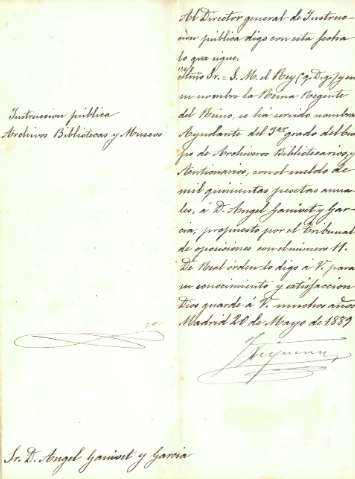 Instruccion pública
Archivos Bibliotecas y Museos
Al Director general de Instruc-
cion pública digo con esta fecha
lo que sigue.
"Iltmo Sr. = S. M. el Rey (q. D. g.) y en
su nombre la Reina Regente
del Reino, se ha servido nombrar
Ayudante del 3er grado del Cuer
po de Archiveros Bibliotecarios, y
Anticuarios, con el sueldo de
mil quinientas pesetas anua-
les, á D. Angel Ganivet y Gar-
cia, propuesto por el Tribunal
de oposiciones con el número 11.
De Real órden lo digo á V. para
su conocimiento y satisfaccion
Dios guarde á V. muchos años
Madrid 20 de Mayo de 1889
Sr. D. Angel Ganivet y Garcia